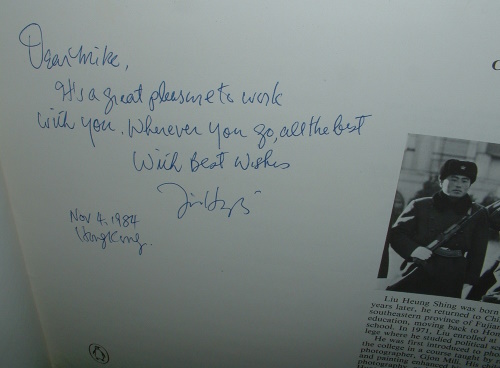 Dear Mike,
It's a great pleasure to work
with you. Wherever you go, all the best
With Best Wishes
Nov 4. 1984
HongKong.
C
Liu Heung Shing was born
years later, he returned to Chi
southeastern province of Fujian
education, moving back to Hon
school. In 1971, Liu enrolled at
lege where he studied political sc
He was first introduced to pho
the college in a course taught by
photographer, Gjon Mili. His
and painting enhanced